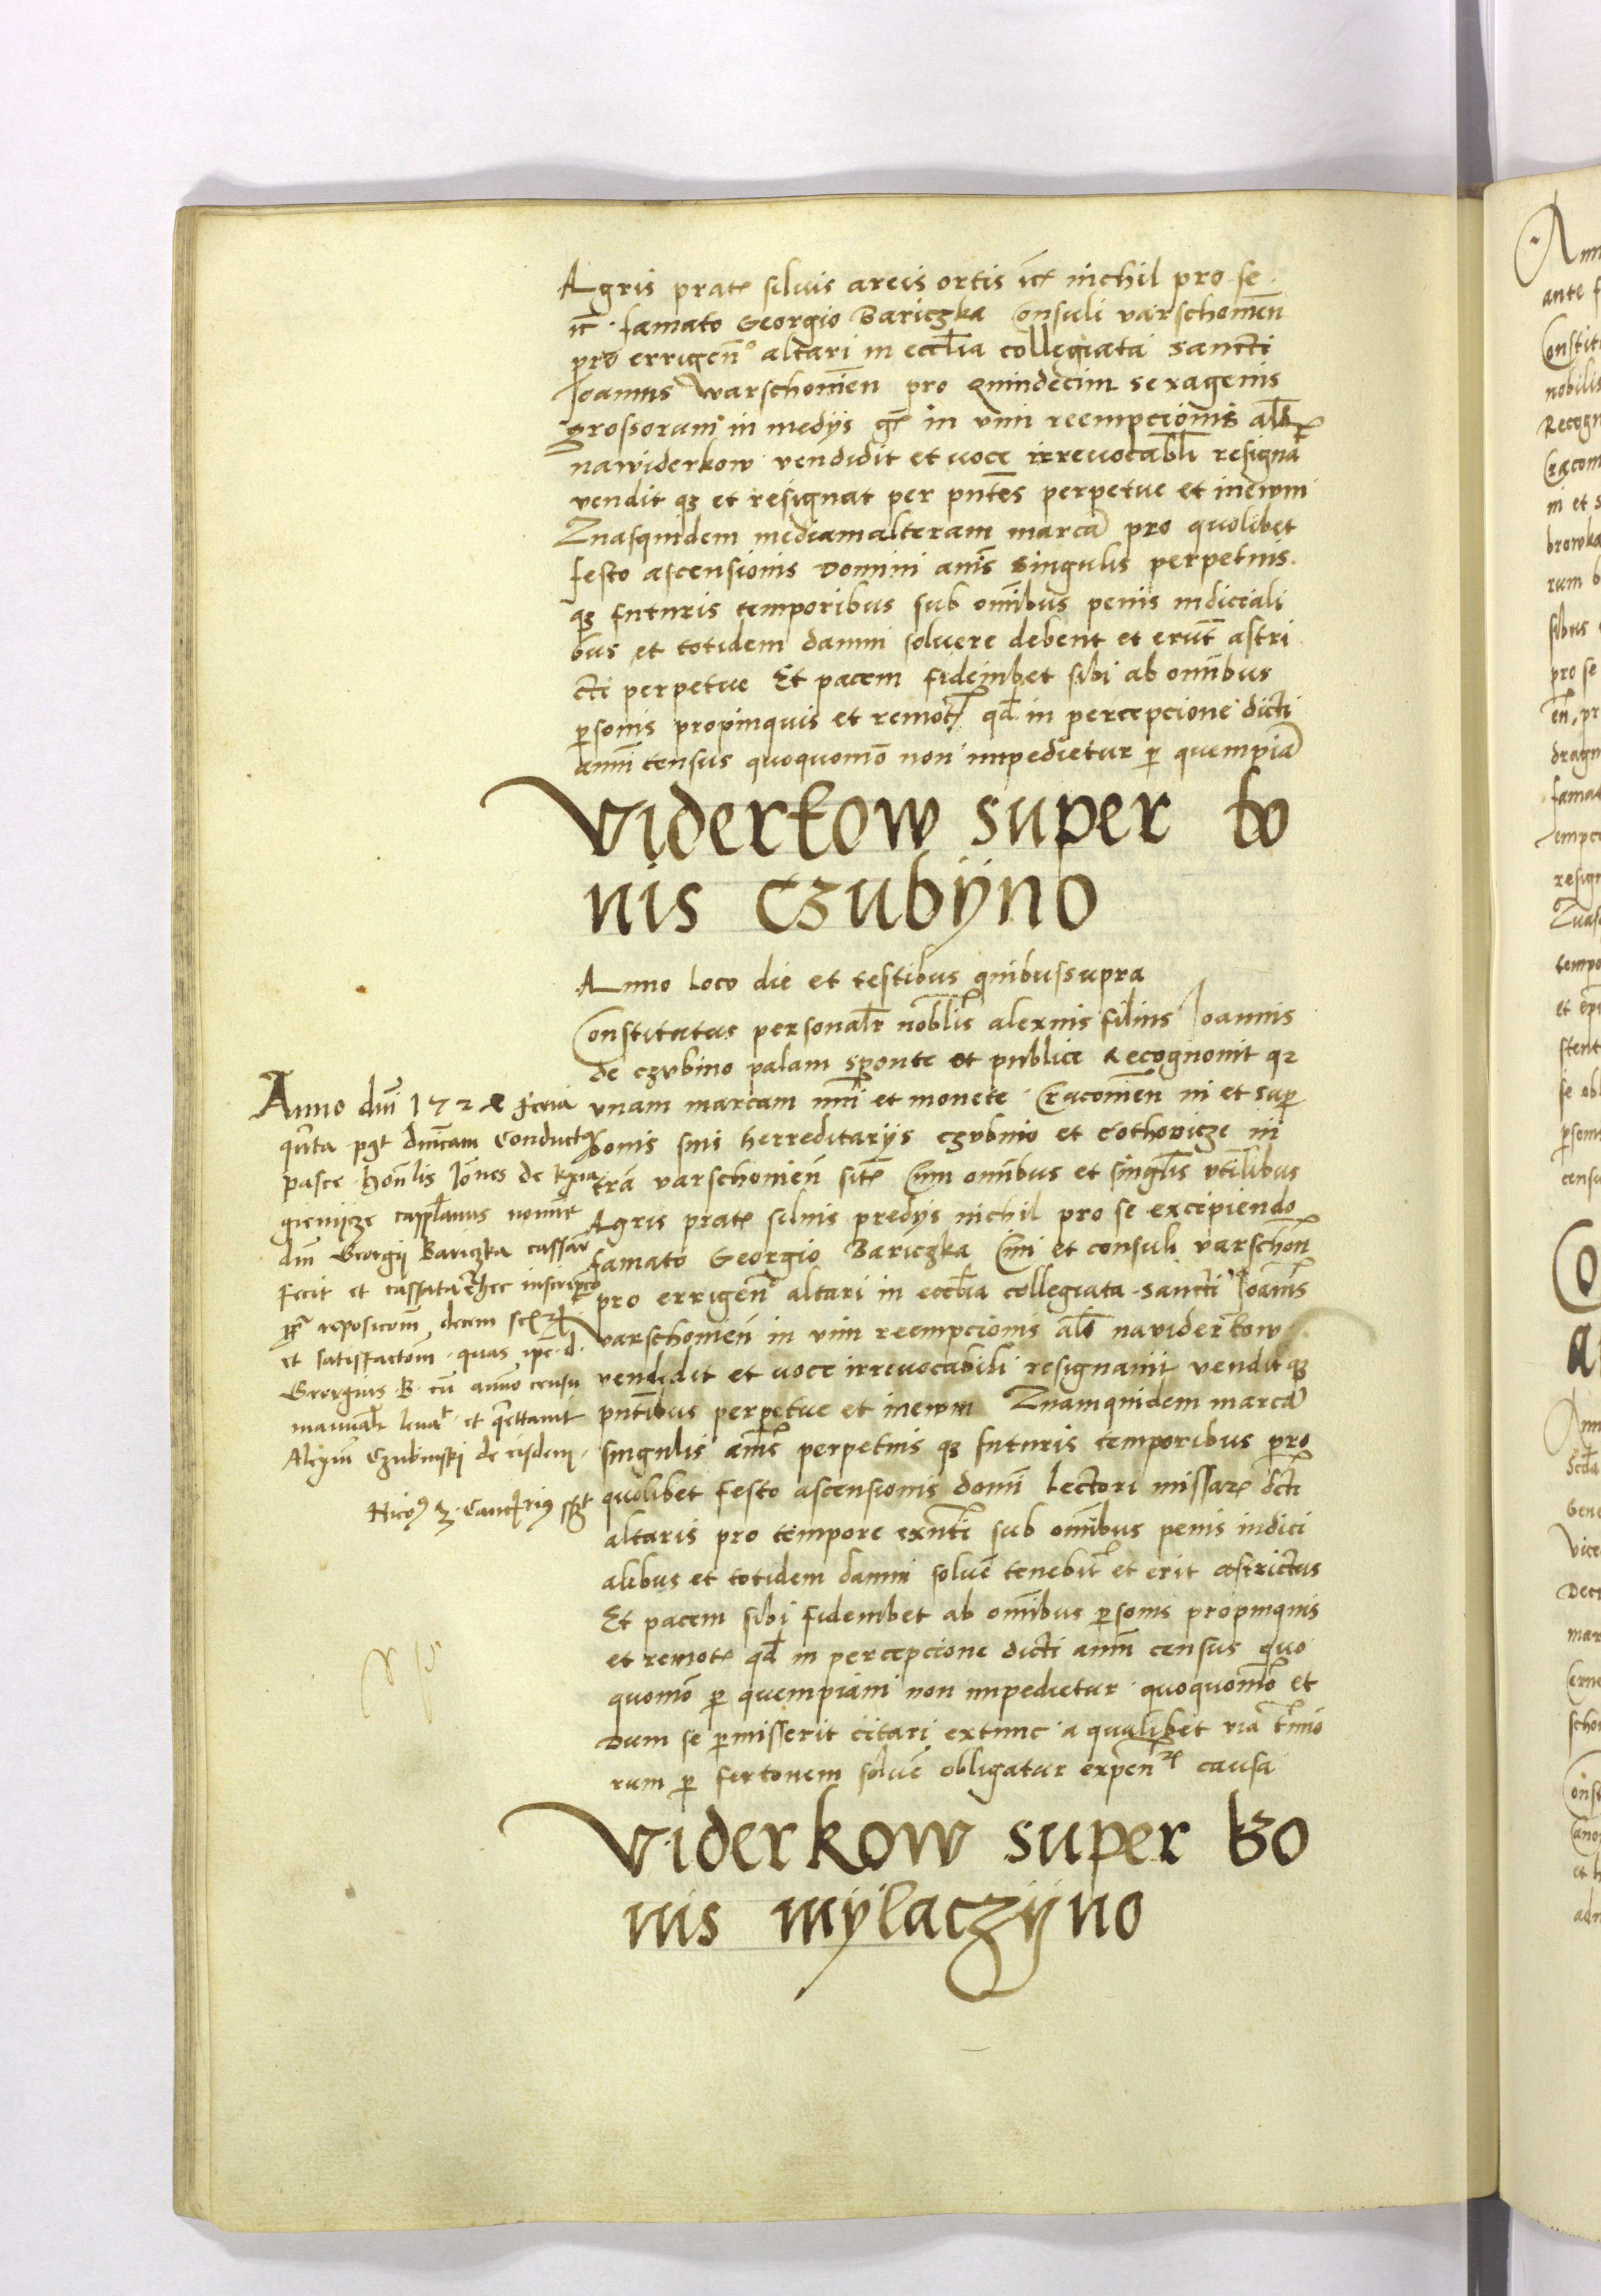 Agris prat silvis areis ortis etc nichil pro se
etc famato Georgio Bariczka Consuli varschomien
pro errigen° altari in ecclia collegiata sancti
Ioannis warschonien pro quindecim sexagenis
grossorum in medys g in vim reempcionis als
nawiderkow vendidit et voce irrevocabli resigna
vendit q3 et resignat per pntes perpetue et inewm
Znasquidem mediamalteram marca pro quolibet
festo ascensionis domini annis singulis perpetuis
q3 futuris temporibus sub omibus penis iudiciali
bus et totidem damni solvere debent et erunt astri
cti perpetue Et pacem fideiubet sibi ab omibus
psonis propinquis et remot qd in percepcione dicti
anni census quoquomo non impedietur p quempia
Viderkow super bo
nis Czubijno
Anno loco die et testibus quibussupra
Constitutus personalr noblis alexius filius Ioannis
de czvbino palam sponte et publice Recognovit q2
vnam marcam nmi et monete Cracomien in et sup
bonis suis herreditarijs czvbino et cothovicze in
tra varschonien sit Cum omibus et singlis vtilibus
Agris prat silvis predys nichil pro se excipiendo
famato Georgio Bariczka Civi et consuli varschon
pro errigen altari in ecclia collegiata sancti Ioanis
varschomien in vim reempcionis als naviderkow
vendidit et voce irrevocabili resignavit vendit q3
pntibus perpetue et inewm Znamquidem marca
singulis annis perpetuis q3 futuris temporibus pro
quolibet festo ascensionis domi lectori missar dcti
altaris pro tempore exnti sub omibus penis iudici
alibus et totidem damni solve tenebit et erit astrictus
Et pacem sibi fideiubet ab omibus psonis propinquis
et remot qd in percepcione dicti anni census quo
quomo p quempiam non impedietur quoquomo et
Dum se pmisserit citari extunc a qualibet via tmio
rum p fertonem solve obligatur expen causa
Viderkow super Bo
nis mÿlaczÿno
Anno dni 1528 feria
qnta pqt dnicam Conductq
pasce honlis Iones de
capplanus nomine
dni Georgij Bariczka cassa
fecit et cassata hec inscripco
reposicom decem
et satisfactom quas ipe d
Georgius B cu annuo censu
manualr levat et qettavit
Aleyium Czubinski de eisdem